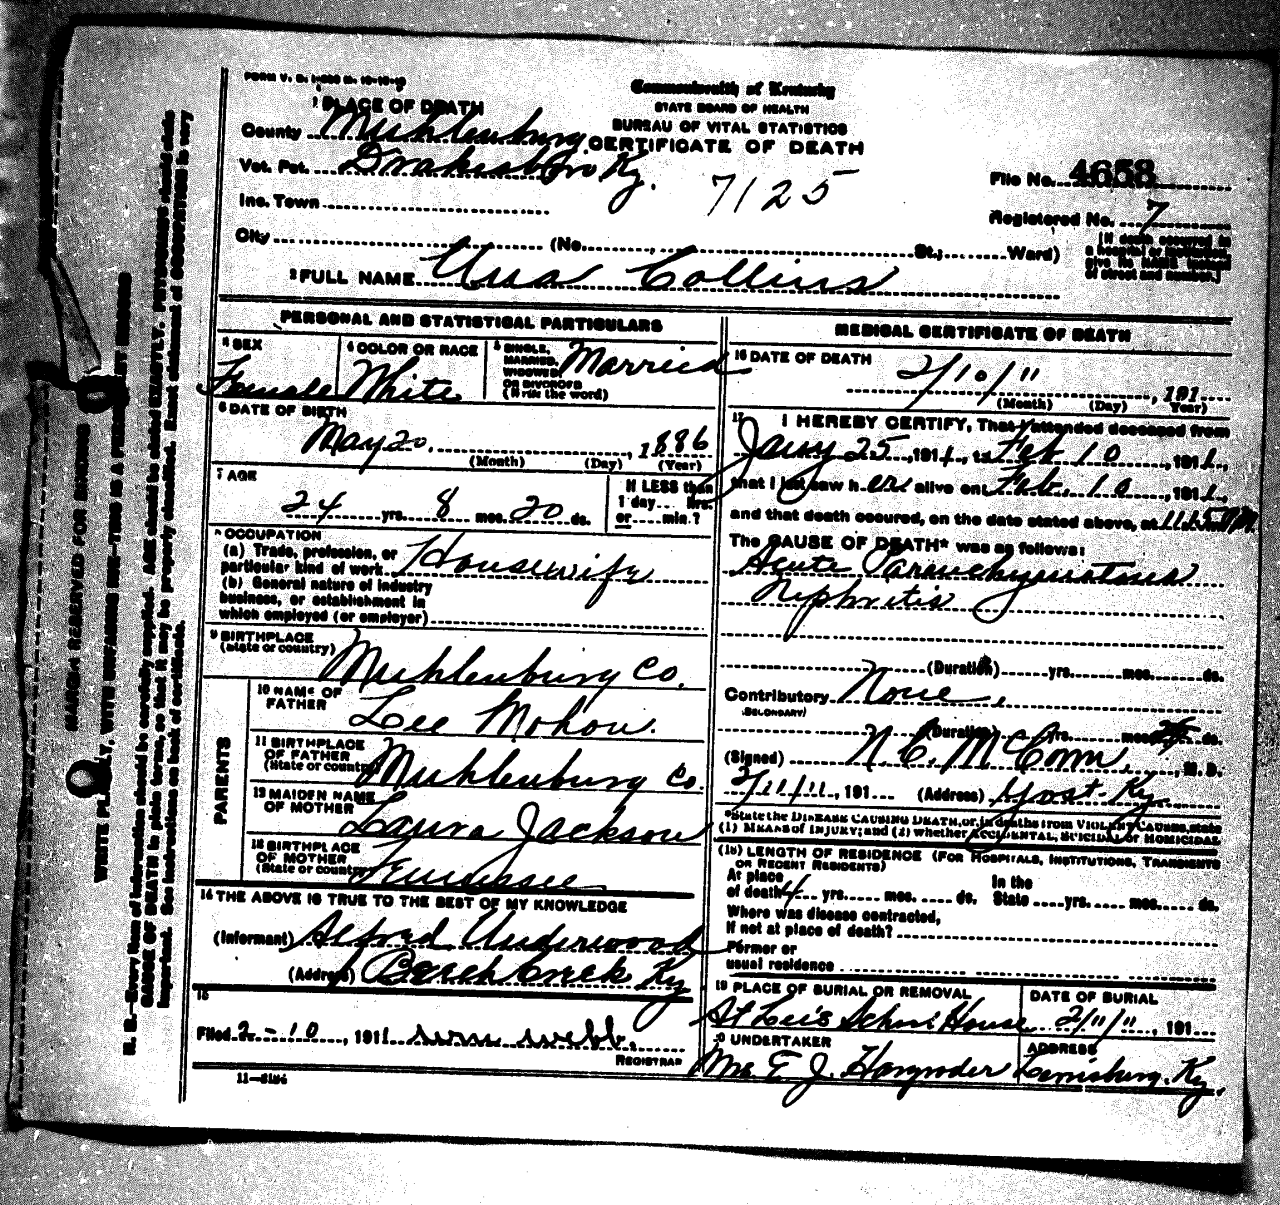 FORM V. S. 1-
Commonwealth of Kentucky
STATE BOARD OF HEALTH
BUREAU OF VITAL STATISTICS
CERTIFICATE OF DEATH
1 PLACE OF DEATH
County Muhlenburg
Vot. Pct. Drakesboro Ky.
7125
File No. 4658
Inc. Town
Registered No. 7
City (No. , St.; Ward)
[If death occurred in a hospital or institution give its NAME instead of street and number.]
2 FULL NAME Una Collins
PERSONAL AND STATISTICAL PARTICULARS
3 SEX
Female
4 COLOR OR RACE
White
5 SINGLE, MARRIED, WIDOWED, OR DIVORCED
(Write the word)
Married
6 DATE OF BIRTH
May 20 , 1886
(Month) (Day) (Year)
7 AGE
24 yrs. 8 mos. 20 ds.
If LESS than 1 day hrs. or min.?
8 OCCUPATION
(a) Trade, profession, or
particular kind of work Housewife
(b) General nature of industry
business, or establishment in
which employed (or employer)
9 BIRTHPLACE
(State or country) Muhlenburg Co.
PARENTS
10 NAME OF
FATHER Lee Mohon.
11 BIRTHPLACE
OF FATHER
(State or country) Muhlenburg Co.
12 MAIDEN NAME
OF MOTHER Laura Jackson
13 BIRTHPLACE
OF MOTHER
(State or country) Tennessee
14 THE ABOVE IS TRUE TO THE BEST OF MY KNOWLEDGE
(Informant) Alfred Underwood
(Address) Beech Creek Ky
15
Filed 2-10, 1911 webb.
REGISTRAR
11-
MEDICAL CERTIFICATE OF DEATH
16 DATE OF DEATH
2/10/11 , 191
(Month) (Day) (Year)
17 I HEREBY CERTIFY, That I attended deceased from
Jany 25, 1911, to Feb 10, 1911,
that I last saw her alive on Feb. 10, 1911,
and that death occured, on the date stated above, at 11:15 PM.
The CAUSE OF DEATH* was as follows:
Acute Parenchymatous
Nephritis
(Duration) yrs. mos. ds.
Contributory None.
(SECONDARY)
(Duration) yrs. mos. ds.
(Signed) , M. D.
2/11/11, 191 (Address) Yost Ky.
*State the DISEASE CAUSING DEATH, or, in deaths from VIOLENT CAUSES, state
(1) MEANS of INJURY; and (2) whether ACCIDENTAL, SUICIDAL or HOMICIDAL
(18) LENGTH OF RESIDENCE (FOR HOSPITALS, INSTITUTIONS, TRANSIENTS
OR RECENT RESIDENTS)
At place In the
of death 4 yrs. mos. ds. State yrs. mos. ds.
Where was disease contracted,
If not at place of death?
Former or
usual residence
19 PLACE OF BURIAL OR REMOVAL
School House
DATE OF BURIAL
2/11/11, 191
20 UNDERTAKER
E J.
ADDRESS
Ky.
MARGIN RESERVED FOR BINDING
WRITE PLAINLY, WITH UNFADING INK—THIS IS A PERMANENT RECORD
N. B.—Every item of information should be carefully supplied. AGE should be stated EXACTLY. PHYSICIANS should state
CAUSE OF DEATH in plain terms, so that it may be properly classified. Exact statement of OCCUPATION is very
important. See instructions on back of certificate.